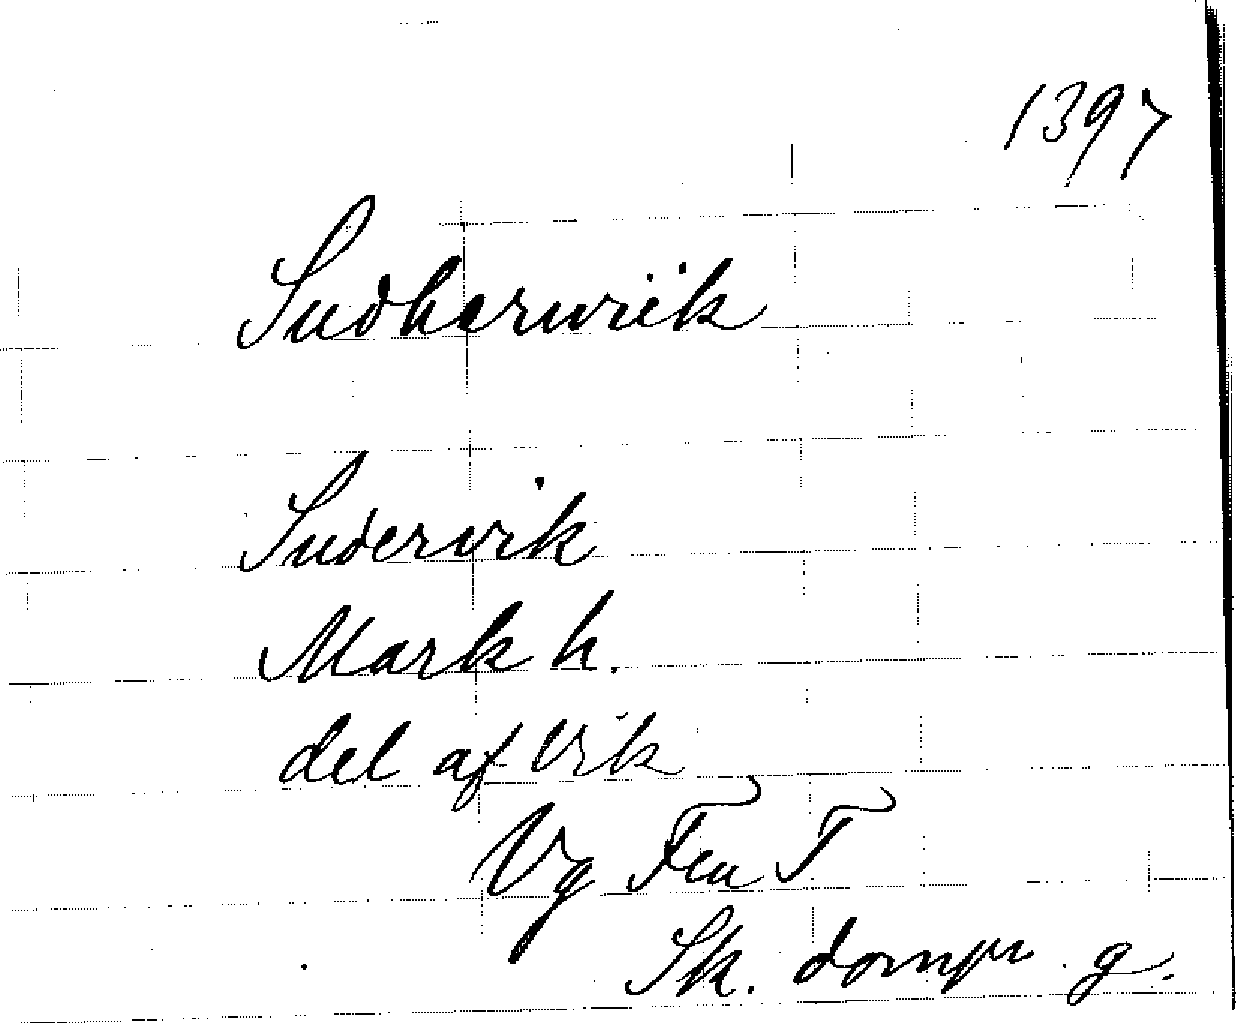 1397
Sudherwiik
Sudervik
Mark h.
del af Vik
Vg Fcu T
Sk. dompr g.